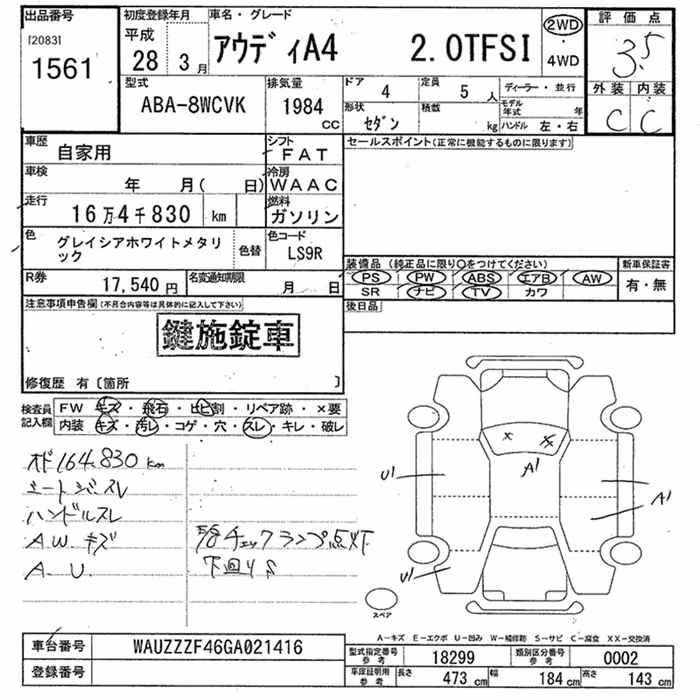 出品番号
[2083]
1561
初度登録年月
平成
28年 3月
車名・グレード
アウディA4 2.0TFSI
2WD
・
4WD
評価点
3.5
外装 内装
C C
型式
ABA-8WCVK
排気量
1984
CC
ドア
4
定員
5人
形状
セダン
積載
kg
ディーラー・並行
モデル年式 年
ハンドル 左・右
車歴
自家用
シフト
FAT
セールスポイント(正常に機能するものに限ります)
車検
年 月( 日)
冷房
WAAC
走行
16万4千830 km
燃料
ガソリン
色
グレイシアホワイトメタリ
ック
色替
色コード
LS9R
装備品(純正品に限り○をつけてください)
PS PW ABS エアB AW
SR ナビ TV カワ
新車保証書
有・無
R券
17,540円
名変通知期限
月 日
後日品
注意事項申告欄(不具合内容等は具体的に記入して下さい)
鍵施錠車
修復歴 有〔箇所 〕
検査員
記入欄
FW キズ・飛石・ヒビ割・リペア跡・×要
内装 キズ・汚レ・コゲ・穴・スレ・キレ・破レ
164.830 km
シートシワスレ
ハンドルスレ
A.W.キズ
A.U.
チェックランプ点灯
下回りS
X
A1
U1
A1
U1
スペア
A-キズ E-エクボ U-凹み W-補修跡 S-サビ C-腐食 XX-交換済
車台番号
WAUZZZF46GA021416
登録番号
型式指定番号
参考
18299
類別区分番号
参考
0002
車庫証明用
参考
長さ
473 cm
幅
184 cm
高さ
143 cm